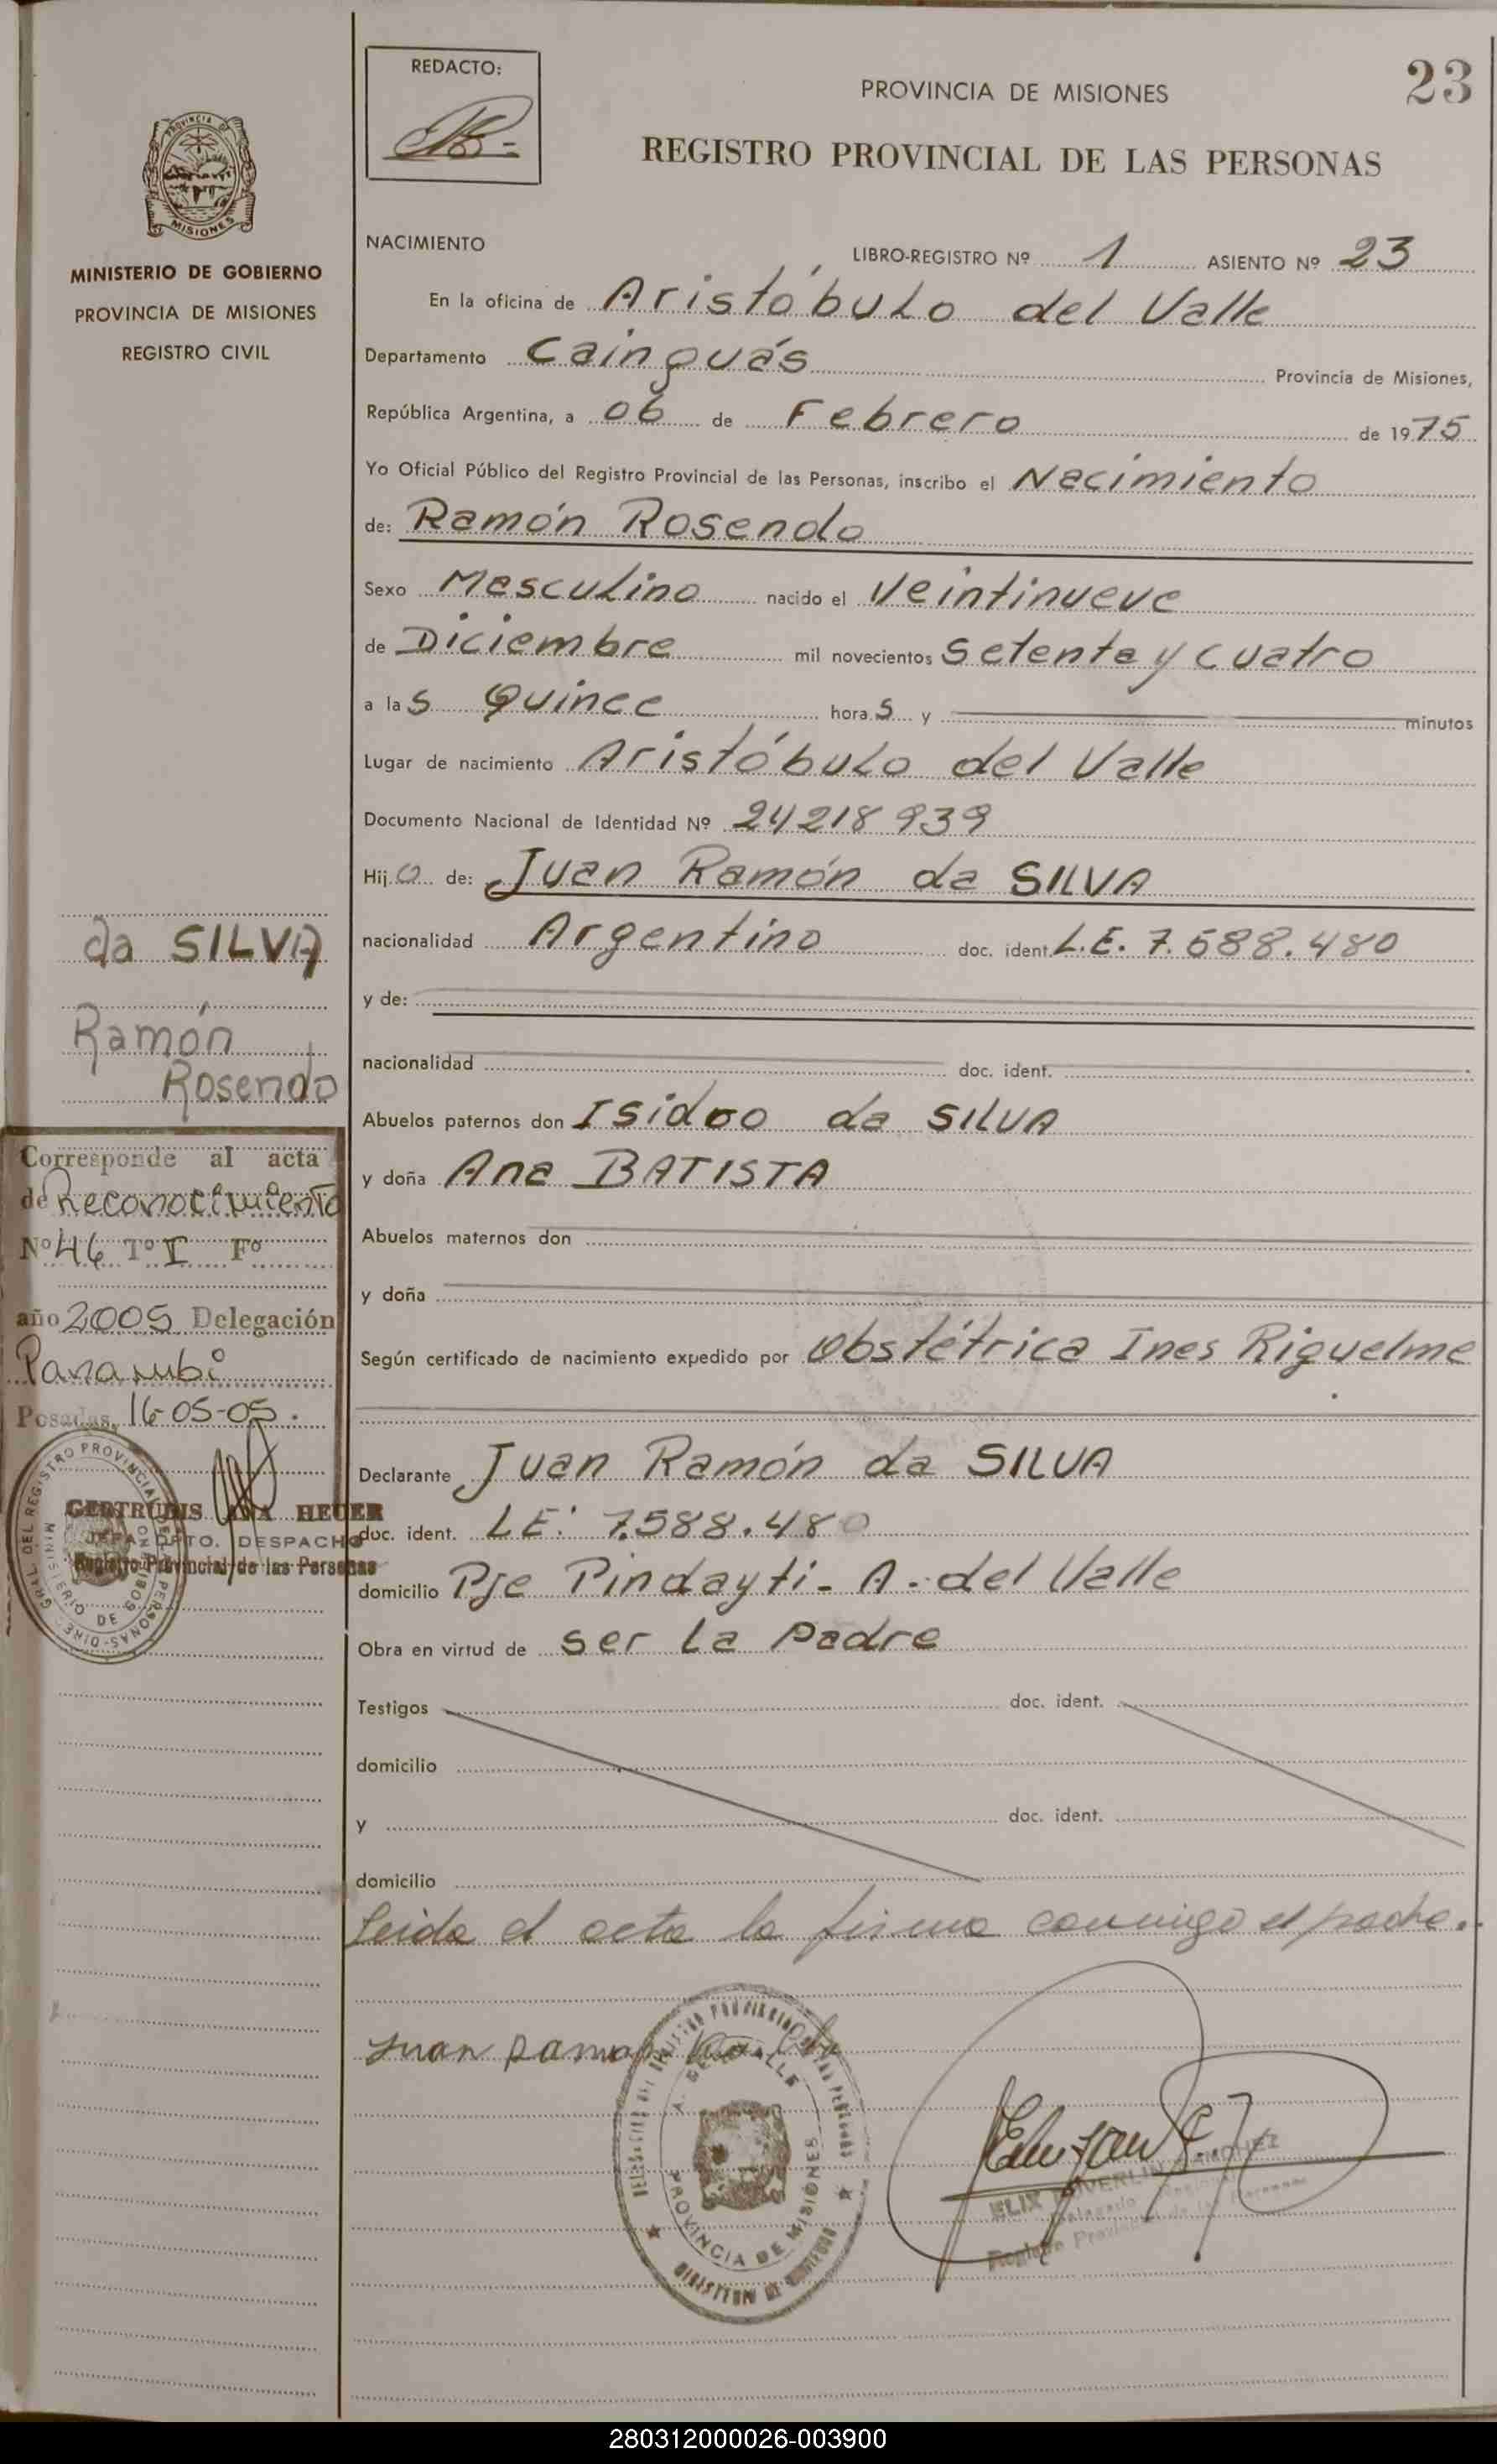 23
REDACTO:
PROVINCIA DE MISIONES
REGISTRO PROVINCIAL DE LAS PERSONAS
MINISTERIO DE GOBIERNO
PROVINCIA DE MISIONES
REGISTRO CIVIL
NACIMIENTO LIBRO-REGISTRO Nº 1 ASIENTO Nº 23
En la oficina de Aristóbulo del Valle
Departamento Cainguás Provincia de Misiones,
República Argentina, a 06 de Febrero de 1975
Yo Oficial Público del Registro Provincial de las Personas, inscribo el Nacimiento
de: Ramón Rosendo
Sexo Masculino nacido el Veintinueve
de Diciembre mil novecientos Setenta y cuatro
a las Quince horas y minutos
Lugar de nacimiento Aristóbulo del Valle
Documento Nacional de Identidad Nº 24218939
Hijo de: Juan Ramón da SILVA
nacionalidad Argentino doc. ident. L.E. 7.588.480
y de:
nacionalidad doc. ident.
Abuelos paternos don Isidro da SILVA
y doña Ana BATISTA
Abuelos maternos don
y doña
Según certificado de nacimiento expedido por Obstétrica Ines Riquelme
Declarante Juan Ramón da SILVA
doc. ident. LE: 7.588.480
domicilio Pje Pindayti - A. del Valle
Obra en virtud de ser la padre
Testigos doc. ident.
domicilio
y doc. ident.
domicilio
Leida el acta la firma conmigo el padre.
Juan Ramon
da SILVA
Ramón
Rosendo
Corresponde al acta
de Reconocimiento
Nº 46 Tº I Fº
año 2005 Delegación
Panambi
Posadas, 16-05-05.
GERTRUDIS ANA HEUER
JEFA DPTO. DESPACHO
Registro Provincial de las Personas
PROVINCIA DE MISIONES
280312000026-003900